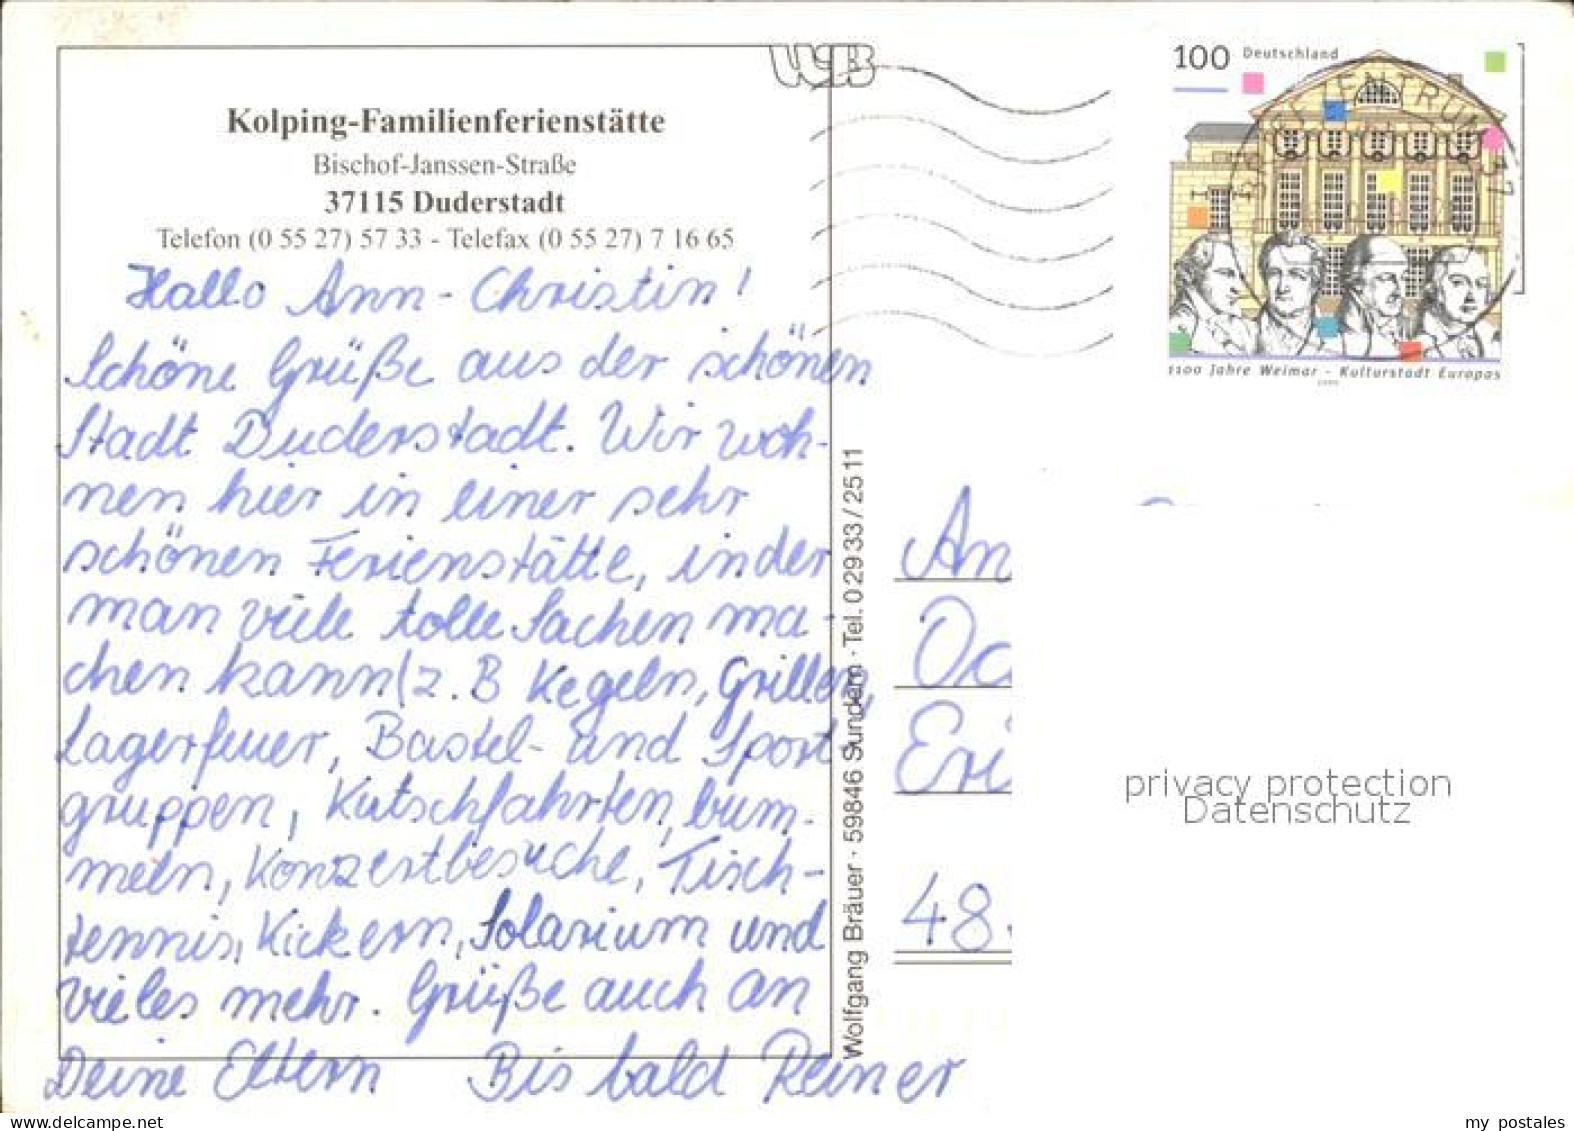 Kolping-Familienferienstätte
Bischof-Janssen-Straße
37115 Duderstadt
Telefon (0 55 27) 57 33 - Telefax (0 55 27) 7 16 65
Hallo Ann-Christin!
Schöne Grüße aus der schönen
Stadt Duderstadt. Wir woh-
nen hier in einer sehr
schönen Ferienstätte, in der
man viele tolle Sachen ma-
chen kann (z. B Kegeln, Grillen,
Lagerfeuer, Bastel- und Sport
gruppen, Kutschfahrten, bum-
meln, Konzertbesuche, Tisch-
tennis, Kickern, Solarium und
vieles mehr. Grüße auch an
Deine Eltern Bis bald Reiner
Wolfgang Bräuer · 59846 Sundern · Tel. 02933/2511
100 Deutschland
1100 Jahre Weimar - Kulturstadt Europas
BRIEFZENTRUM 37
An
Oc
Eri
48.
privacy protection
Datenschutz
my postales
www.delcampe.net